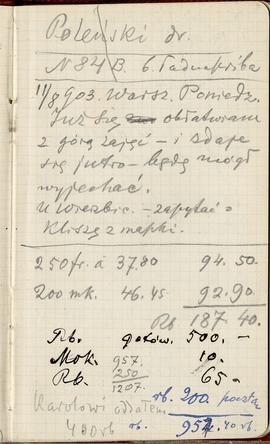 Poleński dr.
N 84 B. 6.
11/8 903. Warsz. Poniedz.
Już się obłatwiam
z górą zajęć – i zdaje
się jutro – będę mógł
wyjechać.
U Wierzbic. – zapytać o
kliszę z mapki.
250 fr. á 37.80 94.50.
200 mk. 46.45 92.90
Rb 187.40
Rb. gotów. 500.–
Mok. 957. 10.
Rb. 250 65
1207.
rb. 200 poczta
Karolowi oddałem
400 rb rb. 952.40 rb.